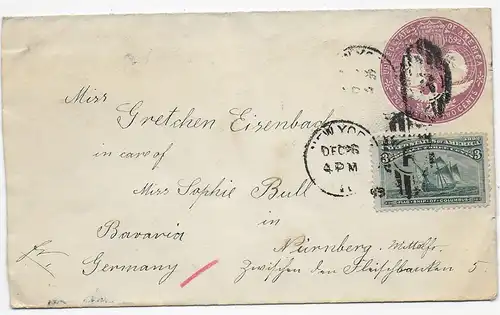 UNITED STATES OF AMERICA
1492 1892
TWO CENTS
NEW YORK
DEC 26
4 PM
93
UNITED STATES OF AMERICA
3 3
FLAG SHIP OF COLUMBUS
Miss
Gretchen Eisenbach
in care of
Miss Sophie Bull
in
Bavaria
Nürnberg. Mittelfr.
Germany
Zwischen den Fleischbanken 5.